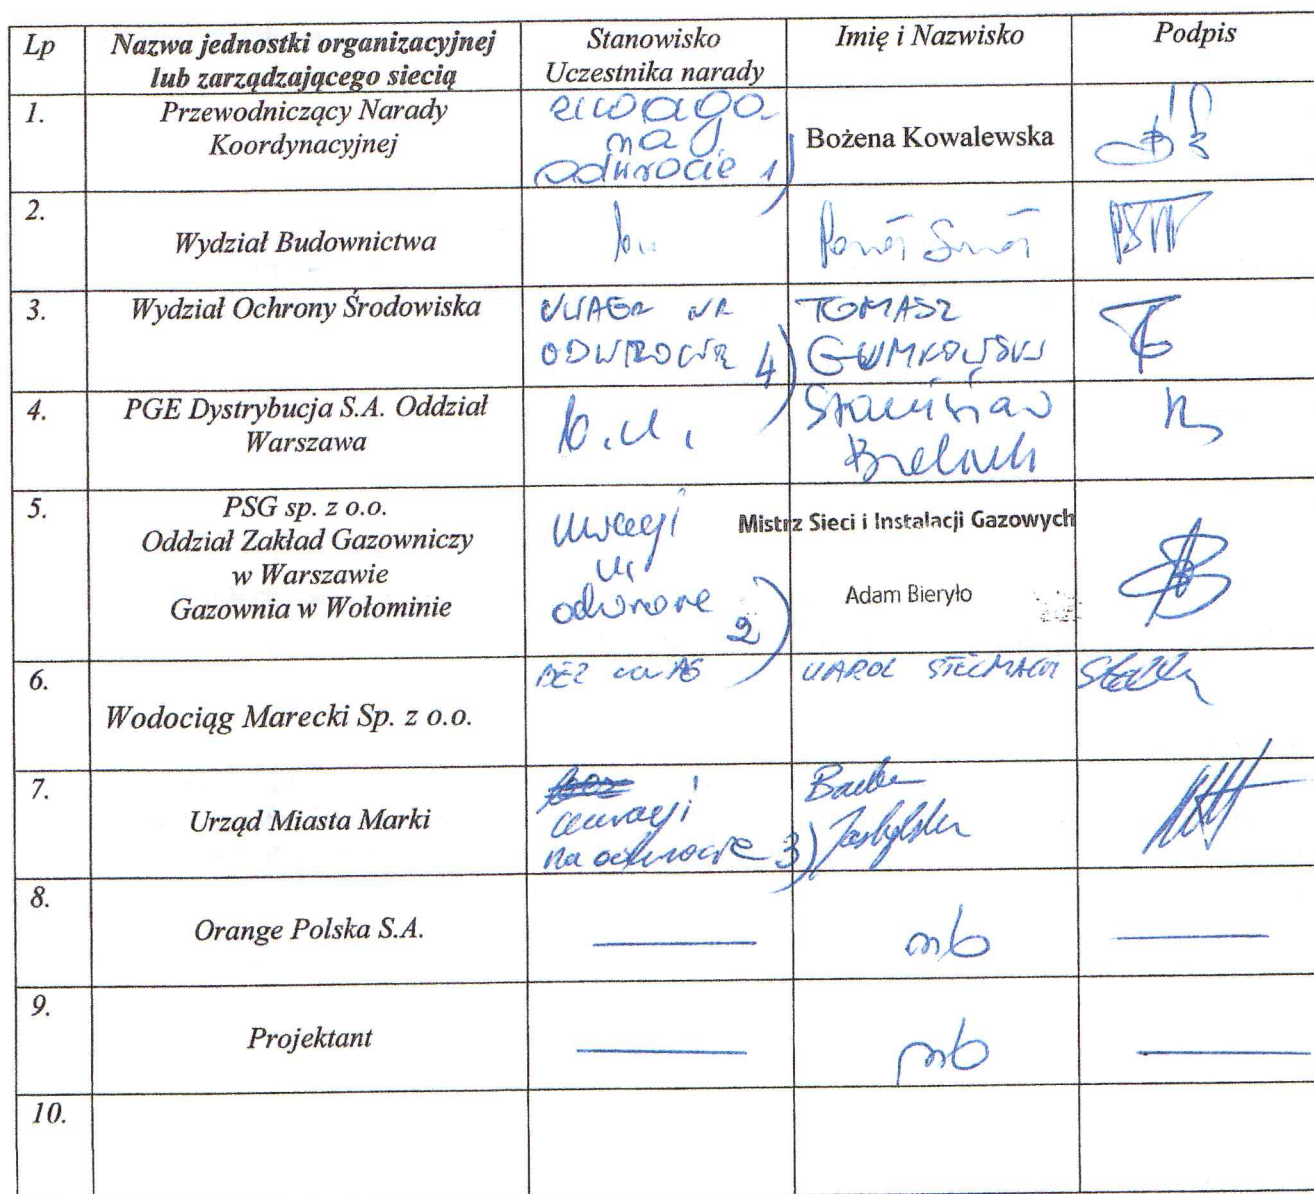 Lp
Nazwa jednostki organizacyjnej
lub zarządzającego siecią
Stanowisko
Uczestnika narady
Imię i Nazwisko
Podpis
1.
Przewodniczący Narady
Koordynacyjnej
uwaga
na
odwrocie 1)
Bożena Kowalewska
2.
Wydział Budownictwa
3.
Wydział Ochrony Środowiska
UWAGA NA
ODWROCIE 4)
TOMASZ
GUMKOWSKI
4.
PGE Dystrybucja S.A. Oddział
Warszawa
b.u.
Stanisław
5.
PSG sp. z o.o.
Oddział Zakład Gazowniczy
w Warszawie
Gazownia w Wołominie
uwagi
odwrocie 2)
Mistrz Sieci i Instalacji Gazowych
Adam Bieryło
6.
Wodociąg Marecki Sp. z o.o.
BEZ UWAG
KAROL STELMACH
7.
Urząd Miasta Marki
uwagi
na odwrocie 3)
8.
Orange Polska S.A.
nb
9.
Projektant
nb
10.